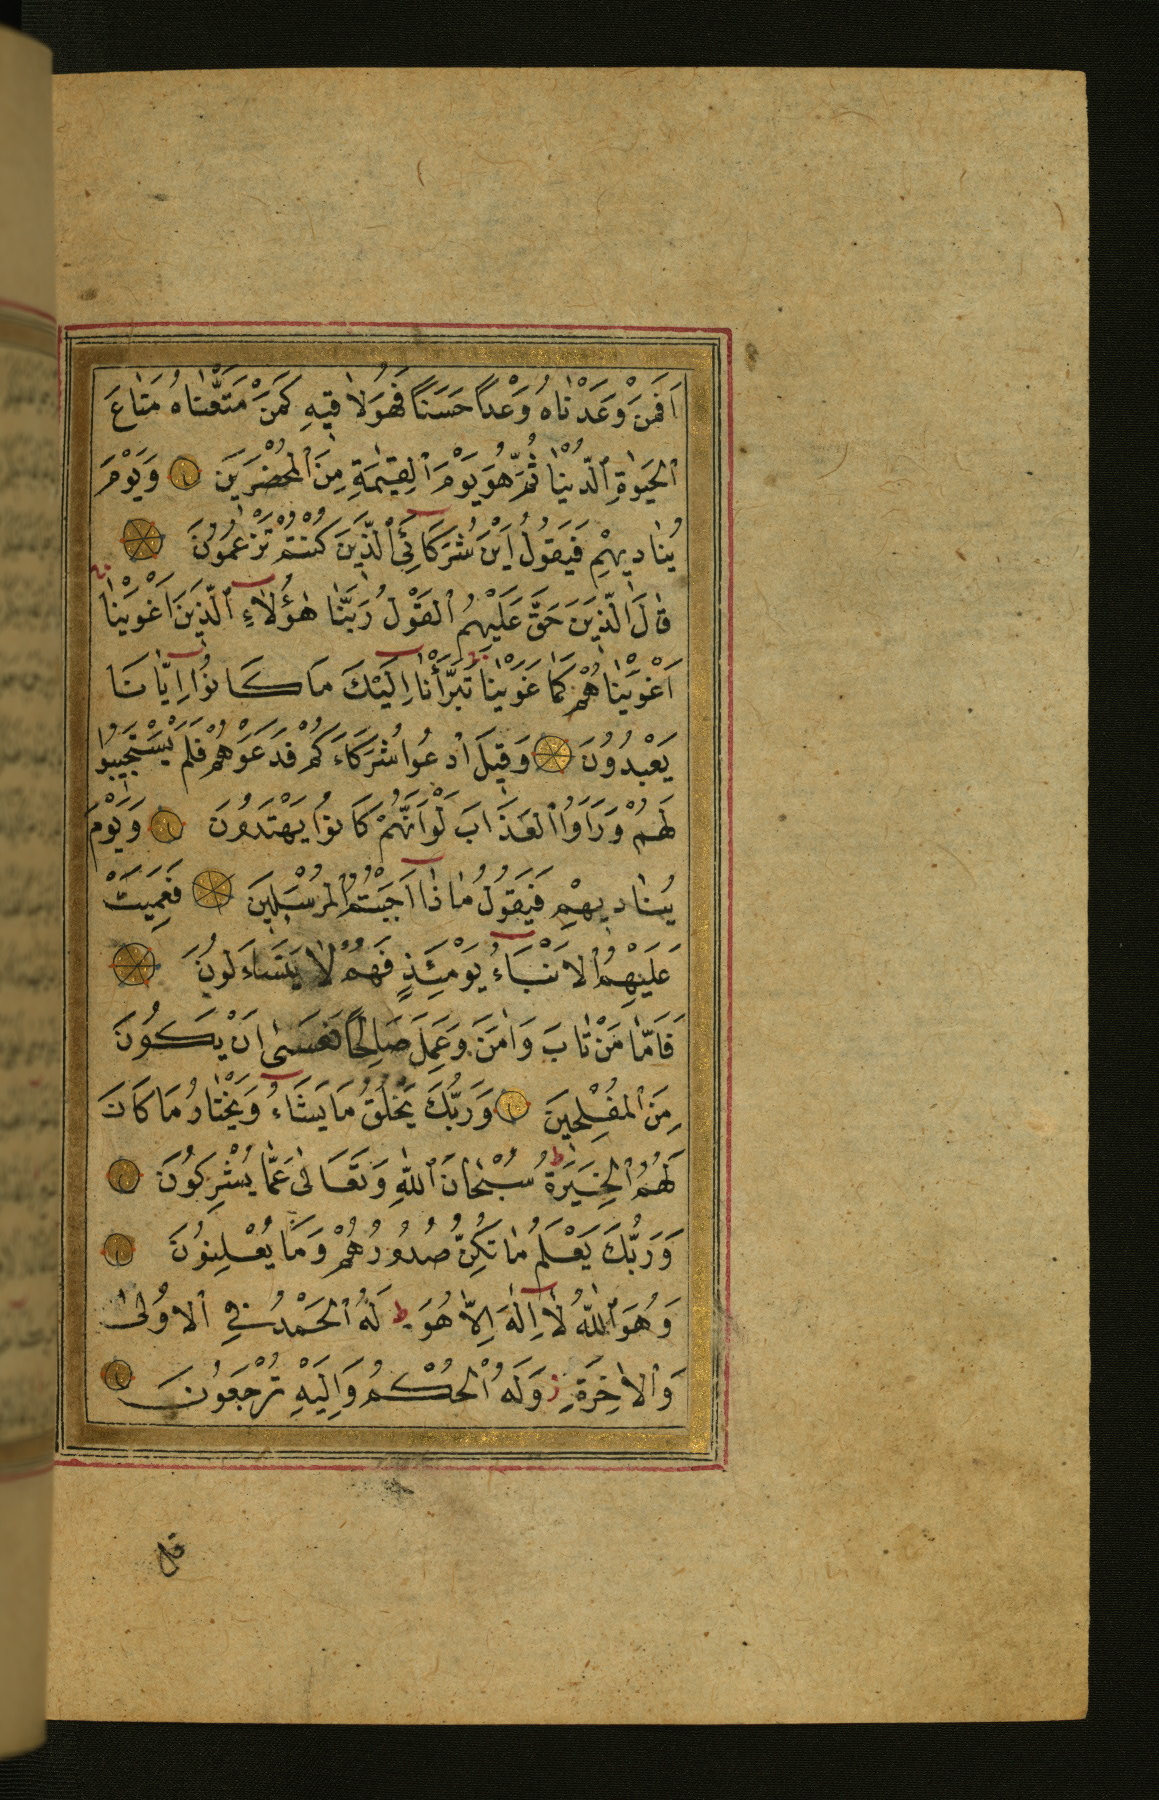 اَفَمَنْ وَعَدْنَاهُ وَعْداً حَسَناً فَهُوَ لَاقِيهِ كَمَنْ مَتَّعْنَاهُ مَتَاعَ
الْحَيٰوةِ الدُّنْيَا ثُمَّ هُوَ يَوْمَ الْقِيٰمَةِ مِنَ الْمُحْضَرِينَ وَيَوْمَ
يُنَادِيهِمْ فَيَقُولُ اَيْنَ شُرَكَائِيَ الَّذِينَ كُنْتُمْ تَزْعُمُونَ
قَالَ الَّذِينَ حَقَّ عَلَيْهِمُ الْقَوْلُ رَبَّنَا هٰؤُلَاءِ الَّذِينَ اَغْوَيْنَا
اَغْوَيْنَاهُمْ كَمَا غَوَيْنَا تَبَرَّأْنَا اِلَيْكَ مَا كَانُوا اِيَّانَا
يَعْبُدُونَ وَقِيلَ ادْعُوا شُرَكَاءَكُمْ فَدَعَوْهُمْ فَلَمْ يَسْتَجِيبُوا
لَهُمْ وَرَاَوُا الْعَذَابَ لَوْ اَنَّهُمْ كَانُوا يَهْتَدُونَ وَيَوْمَ
يُنَادِيهِمْ فَيَقُولُ مَاذَا اَجَبْتُمُ الْمُرْسَلِينَ فَعَمِيَتْ
عَلَيْهِمُ الْاَنْبَاءُ يَوْمَئِذٍ فَهُمْ لَا يَتَسَاءَلُونَ
فَاَمَّا مَنْ تَابَ وَاٰمَنَ وَعَمِلَ صَالِحًا فَعَسٰى اَنْ يَكُونَ
مِنَ الْمُفْلِحِينَ وَرَبُّكَ يَخْلُقُ مَا يَشَاءُ وَيَخْتَارُ مَا كَانَ
لَهُمُ الْخِيَرَةُ ط سُبْحَانَ اللّٰهِ وَتَعَالٰى عَمَّا يُشْرِكُونَ
وَرَبُّكَ يَعْلَمُ مَا تُكِنُّ صُدُورُهُمْ وَمَا يُعْلِنُونَ
وَهُوَ اللّٰهُ لَا اِلٰهَ اِلَّا هُوَ ط لَهُ الْحَمْدُ فِي الْاُولٰى
وَالْاٰخِرَةِ ز وَلَهُ الْحُكْمُ وَاِلَيْهِ تُرْجَعُونَ
قل